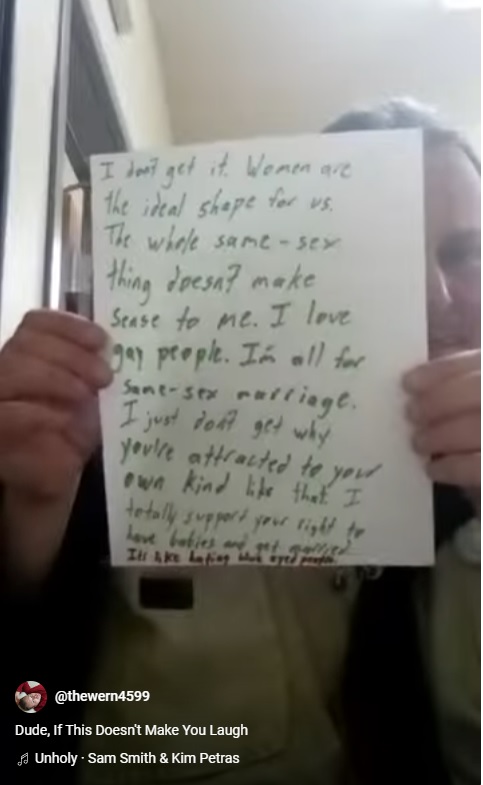 I don't get it. Women are
the ideal shape for us.
The whole same-sex
thing doesn't make
sense to me. I love
gay people. I'm all for
same-sex marriage.
I just don't get why
you're attracted to your
own kind like that. I
totally support your right to
have babies and get married.
It's like hating blue eyed people.
@thewern4599
Dude, If This Doesn't Make You Laugh
Unholy · Sam Smith & Kim Petras